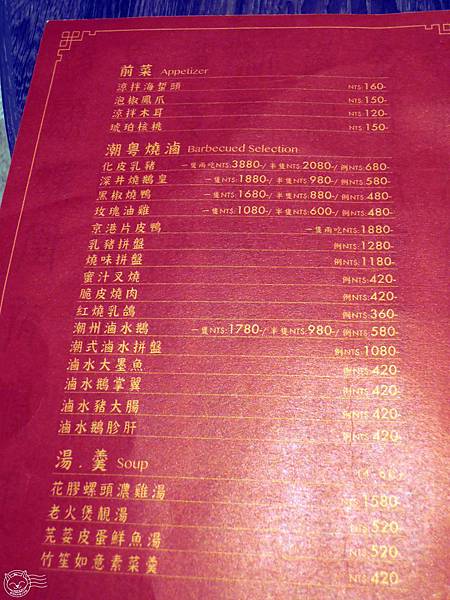 前菜 Appetizer
涼拌海蜇頭 NT$:160-
泡椒鳳爪 NT$:150-
涼拌木耳 NT$:120-
琥珀核桃 NT$:150-
潮粵燒滷 Barbecued Selection
化皮乳豬 一隻兩吃NT$:3880-/半隻NT$:2080-/例NT$:680-
深井燒鵝皇 一隻NT$:1880-/半隻NT$:980-/例NT$:580-
黑椒燒鴨 一隻NT$:1680-/半隻NT$:880-/例NT$:480-
玫瑰油雞 一隻NT$:1080-/半隻NT$:600-/例NT$:480-
京港片皮鴨 一隻兩吃NT$:1880-
乳豬拼盤 例NT$:1280-
燒味拼盤 例NT$:1180-
蜜汁叉燒 例NT$:420-
脆皮燒肉 例NT$:420-
紅燒乳鴿 例NT$:360-
潮州滷水鵝 一隻NT$:1780-/半隻NT$:980-/例NT$:580
潮式滷水拼盤 例NT$:1080-
滷水大墨魚 例NT$:420-
滷水鵝掌翼 例NT$:420-
滷水豬大腸 例NT$:420-
滷水鵝胗肝 例NT$:420-
湯．羹 Soup
花膠螺頭濃雞湯 NT$:1580-
老火煲靚湯 NT$:520-
芫荽皮蛋鮮魚湯 NT$:520-
竹笙如意素菜羹 NT$:420-